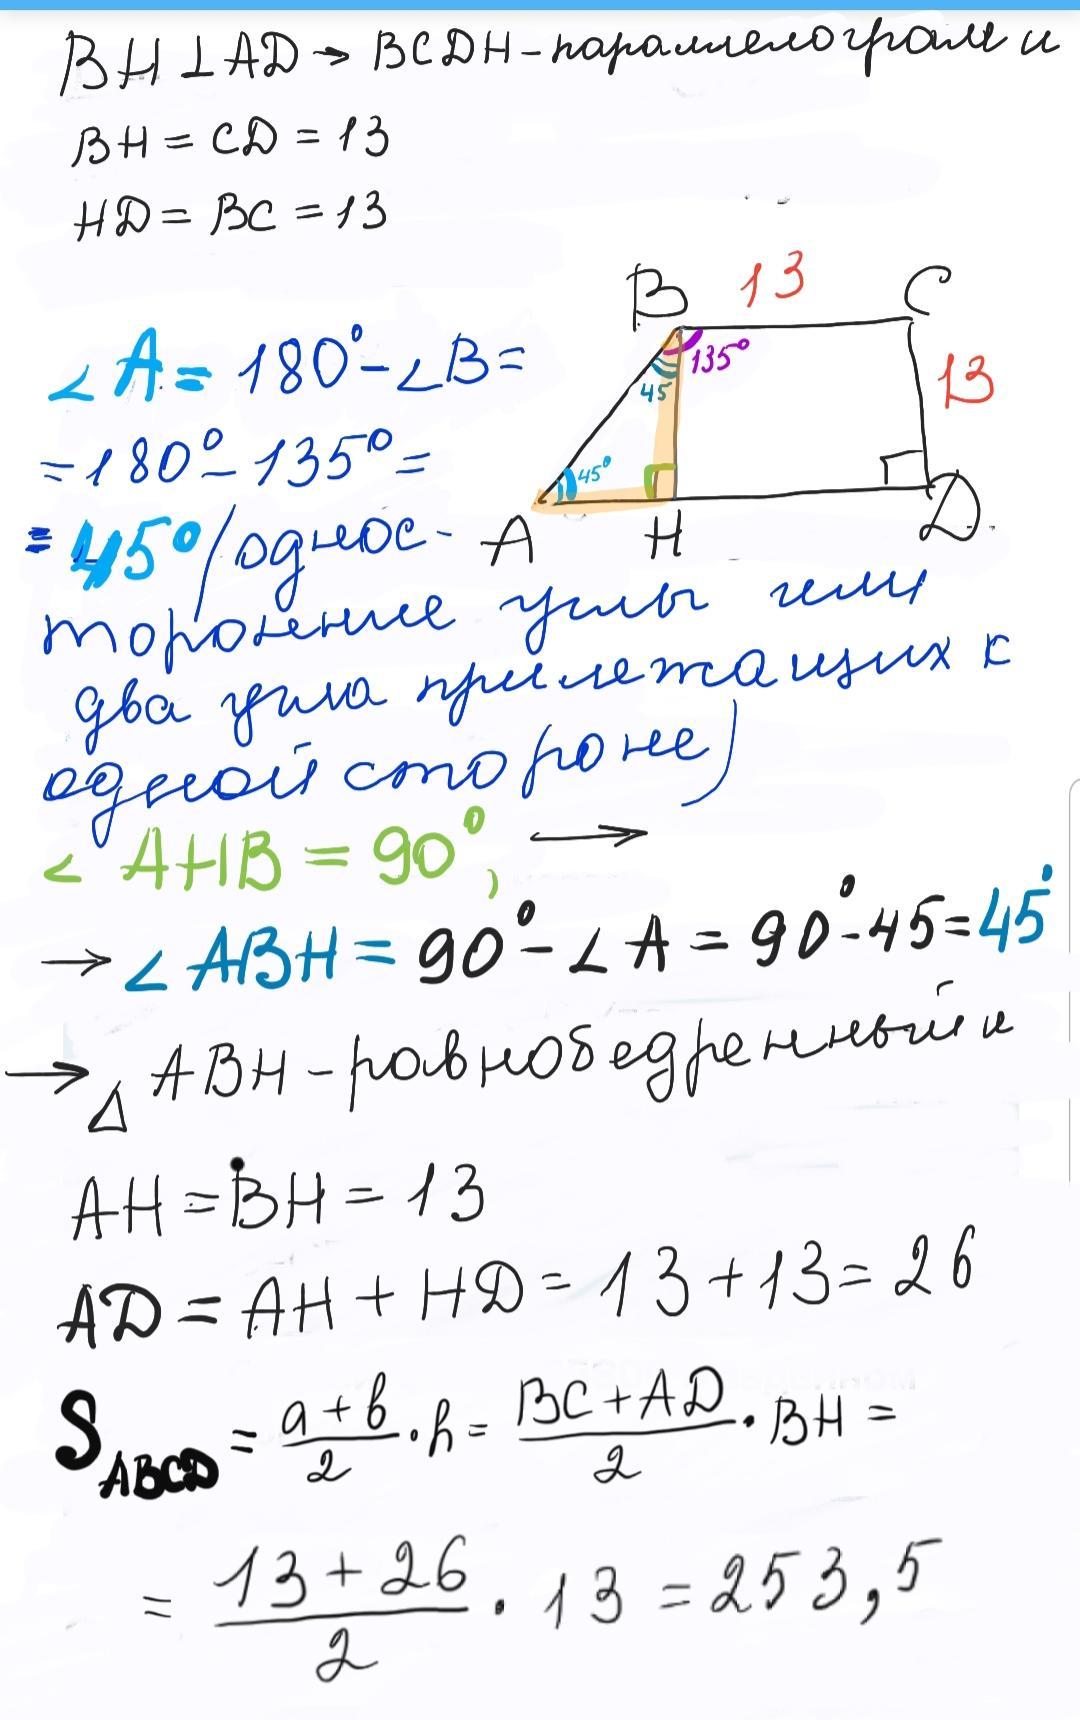 BH⊥AD → BCDH - параллелограм и
BH = CD = 13
HD = BC = 13
B 13 C
∠A = 180° - ∠B =
135°
13
45
= 180° - 135° =
45°
= 45° /однос-
A H D.
торонние углы или
два угла прилежащих к
одной стороне)
∠AHB = 90°, →
→ ∠ABH = 90° - ∠A = 90° - 45 = 45°
→ Δ ABH - равнобедренный и
AH = BH = 13
AD = AH + HD = 13 + 13 = 26
S ABCD = a + b / 2 · h = BC + AD / 2 · BH =
= 13 + 26 / 2 · 13 = 253,5